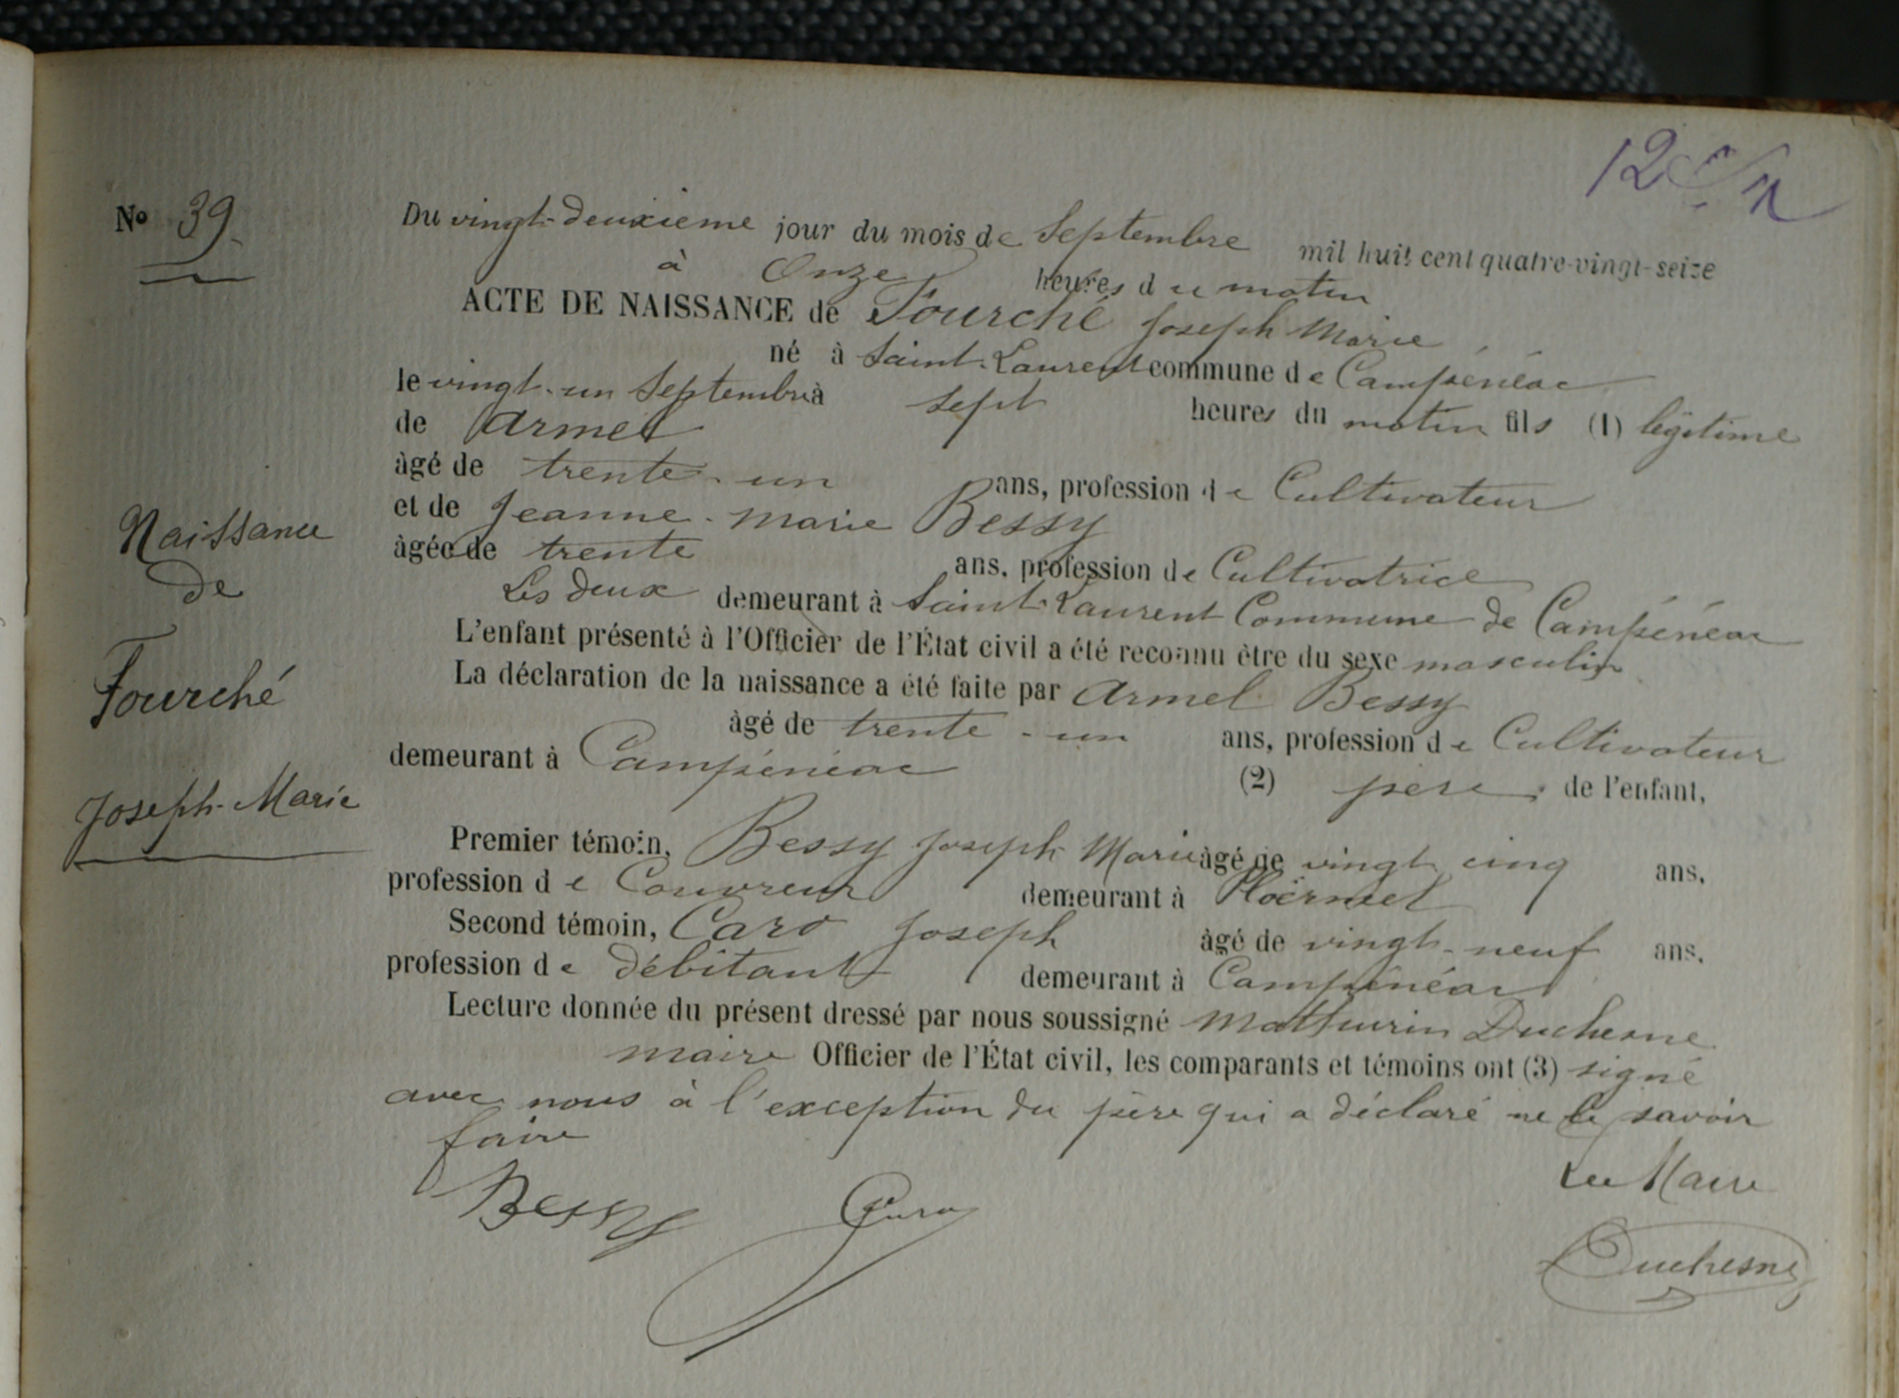 12
No 39.
Du vingt-deuxième jour du mois de Septembre mil huit cent quatre-vingt-seize
à Onze heures du matin
ACTE DE NAISSANCE de Fourché Joseph Marie
né à Saint-Laurent commune de Campénéac
le vingt-un Septembre à sept heures du matin fils (1) légitime
de Armel
âgé de trente-un ans, profession de Cultivateur
et de Jeanne-Marie Bessy
âgée de trente ans, profession de Cultivatrice
Les deux demeurant à Saint-Laurent Commune de Campénéac
L'enfant présenté à l'Officier de l'État civil a été reconnu être du sexe masculin
La déclaration de la naissance a été faite par Armel Bessy
âgé de trente-un ans, profession de Cultivateur
demeurant à Campénéac (2) père de l'enfant,
Premier témoin, Bessy Joseph Marie âgé de vingt cinq ans,
profession de Couvreur demeurant à Ploërmel
Second témoin, Caro Joseph âgé de vingt-neuf ans,
profession de débitant demeurant à Campénéac
Lecture donnée du présent dressé par nous soussigné Mathurin Duchesne
maire Officier de l'État civil, les comparants et témoins ont (3) signé
avec nous à l'exception du père qui a déclaré ne le savoir
faire
Le Maire
Bessy Caro
Duchesne
Naissance
de
Fourché
Joseph-Marie